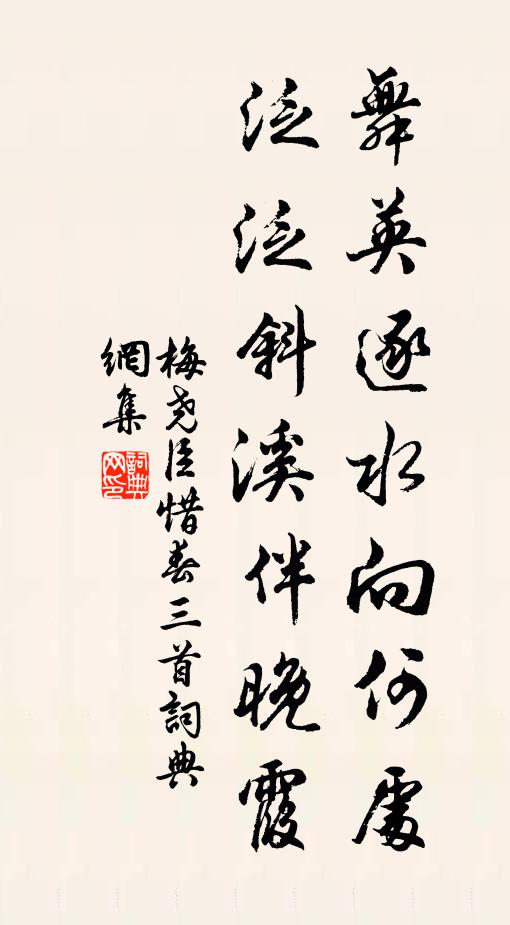 舞英逐水向何處
泛泛斜溪伴晚霞
梅堯臣惜春三首詞典
網集
詞典網印